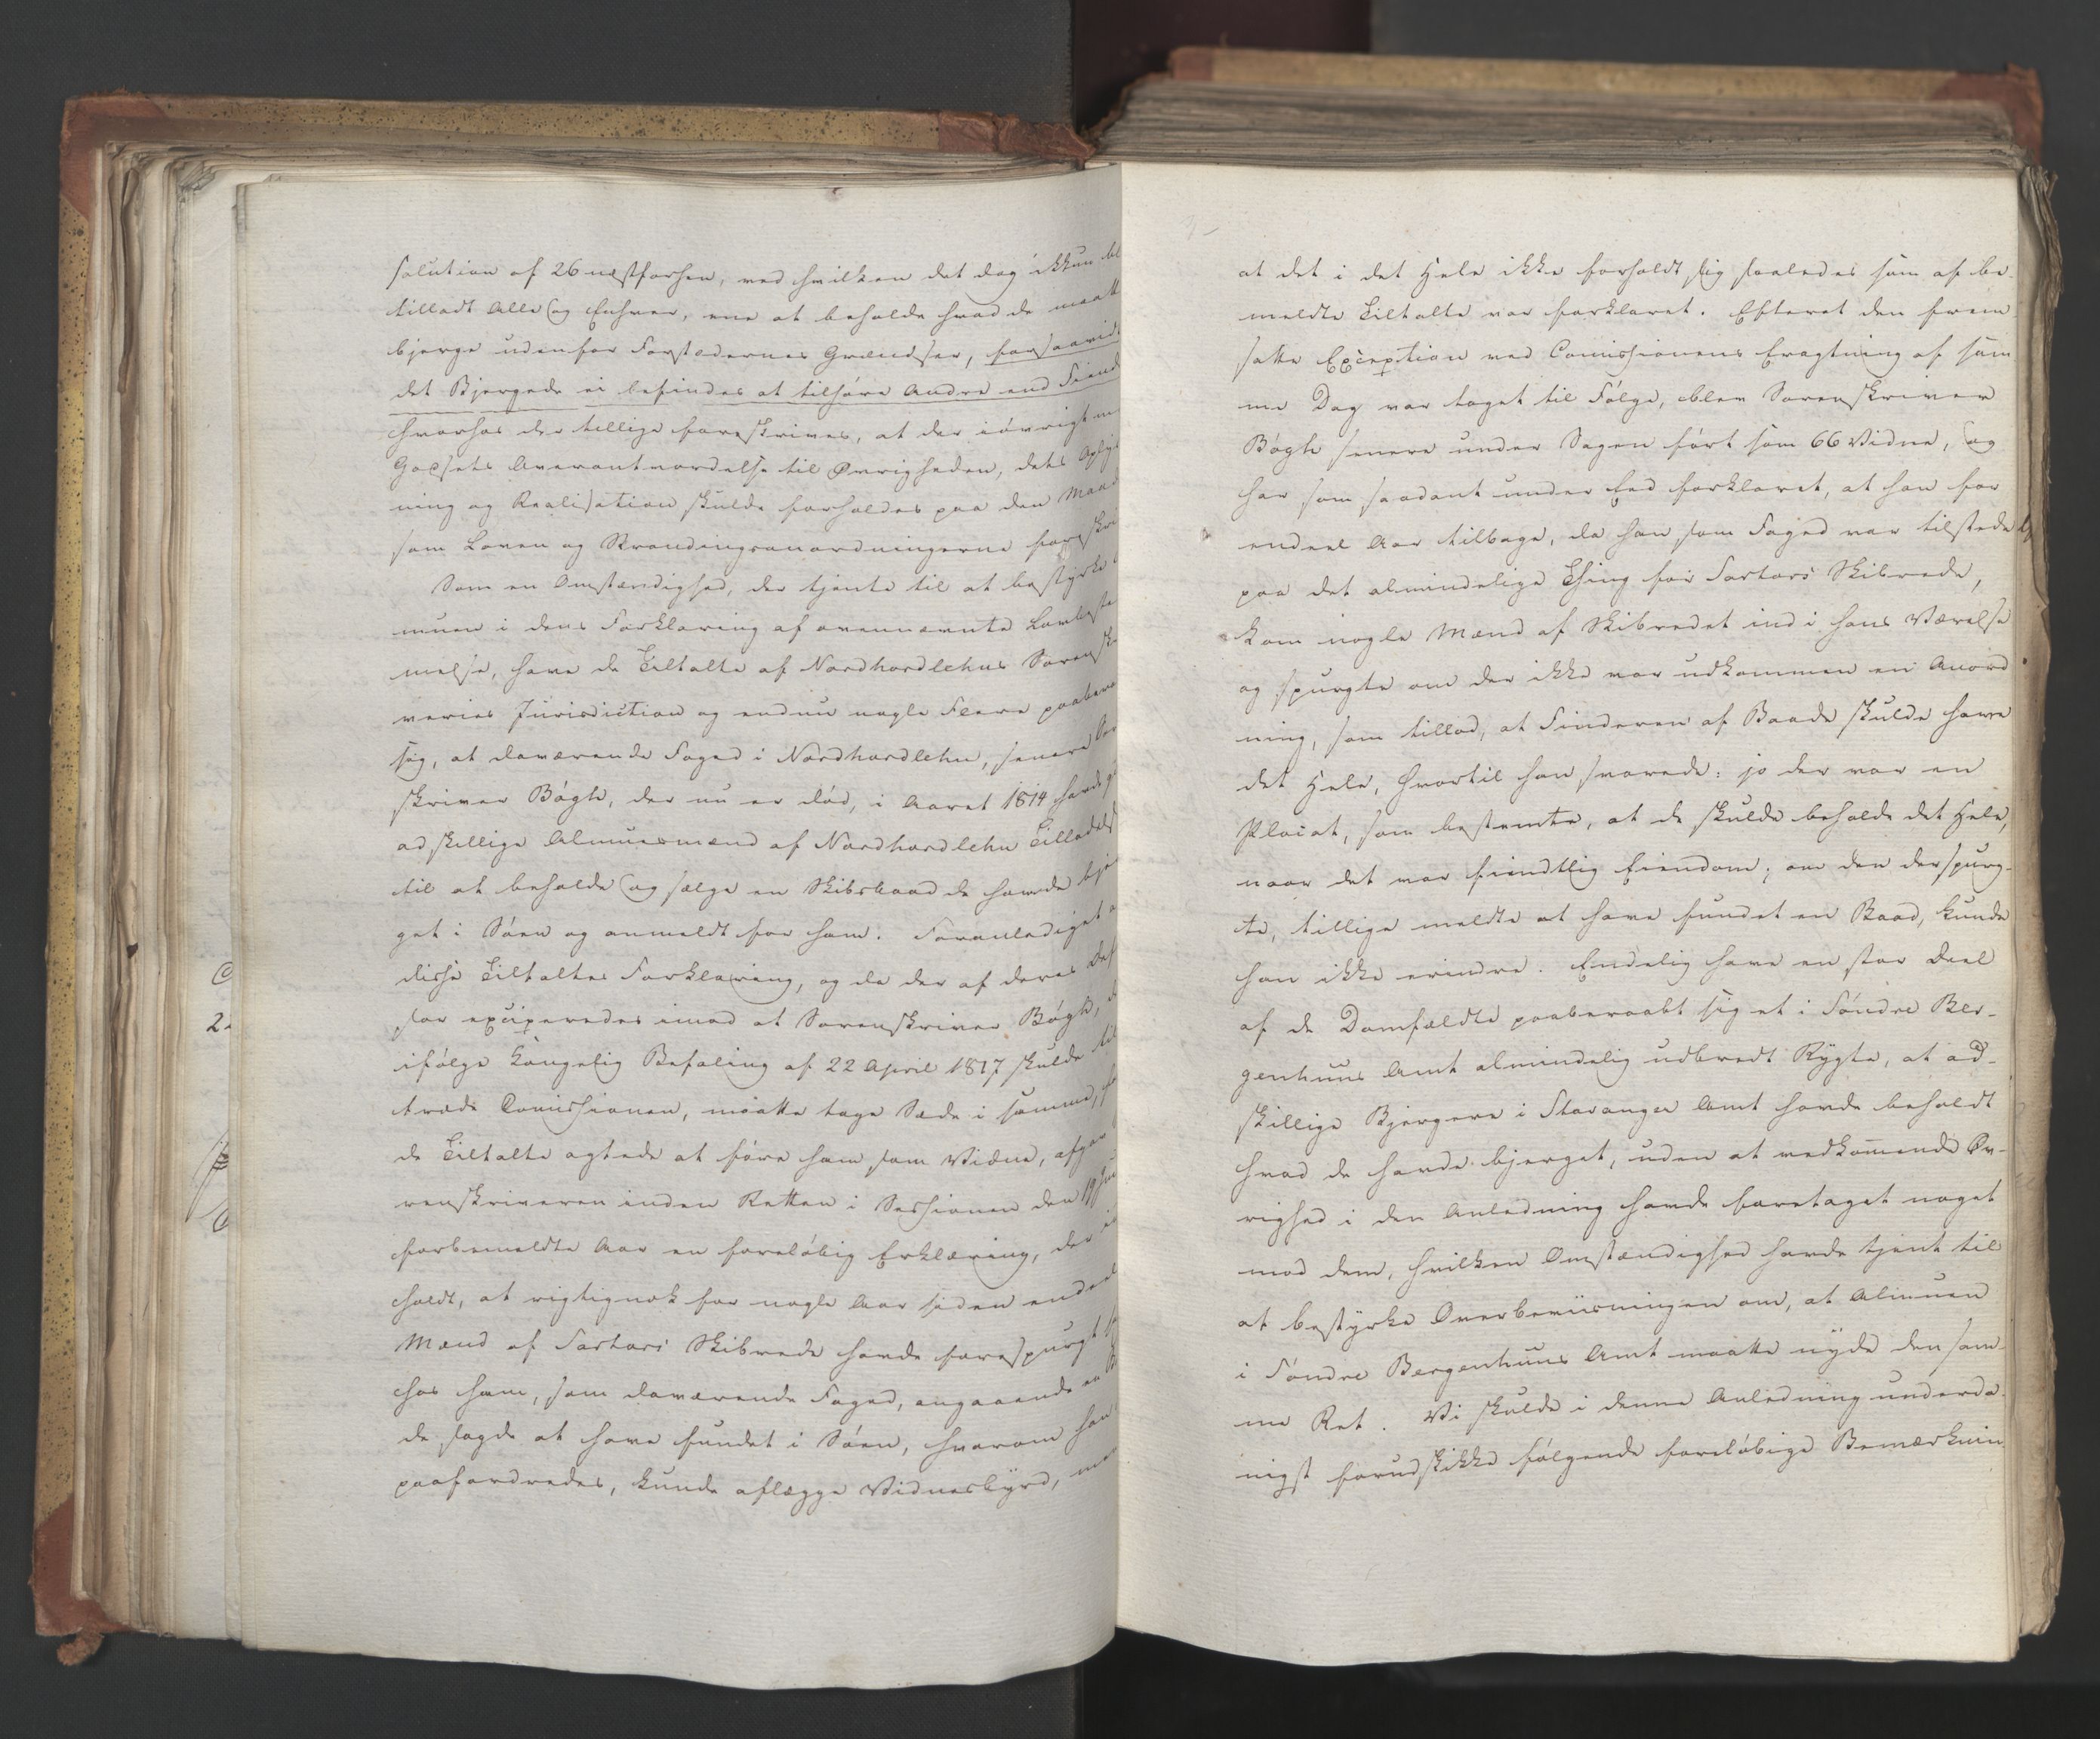 solution af 26 næstforhen, ved hvilken det dog ikkun bl
tilladt Alle og Enhver, ene at beholde hvad de maatt
bjerge udenfor Forstædernes Grændser, forsaavidt
det Bjergede ei befindes at tilhøre Andre end Fiend
hvorhos der tillige foreskrives, at der iøvrigt m
Godsets Overantvordelse til Øvrigheden, dets Oplys
ning og Realisation skulde forholdes paa den Maad
som Loven og Strandingsanordningerne foreskri
Som en Omstændighed, der tjente til at bestyrke
muen i dens Forklaring af ovennævnte Lovbeste
melse, have de Tiltalte af Nordhordlehns Sorenskr
veries Jurisdiction og endnu nogle Flere paabera
sig, at daværende Foged i Nordhordlehn, senere Sor
skriver Bøgh, der nu er død, i Aaret 1814 havde g
adskillige Almuesmænd af Nordhordlehn Tilladels
til at beholde og sælge en Skibsbaad de havde bjer
get i Søen og anmeldt for ham. Foranlediget a
disse Tiltaltes Forklaring, og da der af deres Def
sor exciperedes imod at Sorenskriver Bøgh, d
ifølge Kongelig Befaling af 22 April 1817 skulde til
træde Comissionen, maatte tage Sæde i samme, fo
de Tiltalte agtede at føre ham som Vidne, afgav
renskriveren inden Retten i Sessionen den 19 Jun
forbemeldte Aar en foreløbig Erklæring, der i
holdt, at rigtignok for nogle Aar siden endeel
Mænd af Sartors Skibrede havde forespurgt s
hos ham, som daværende Foged, angaaende en B
de sagde at have fundet i Søen, hvorom han
paafordredes, kunde aflægge Vidnesbyrd, me
at det i det Hele ikke forholdt sig saaledes som af be
meldte Tiltalte var forklaret. Efterat den frem
satte Exception ved Comissionens Eragtning af sam
me Dag var taget til Følge, blev Sorenskriver
Bøgh senere under Sagen ført som 66 Vidne, og
har som saadant under Eed forklaret, at han for
endeel Aar tilbage, da han som Foged var tilstede
paa det almindelige Thing for Sartors Skibrede,
kom nogle Mænd af Skibredet ind i hans Værelse
og spurgte om der ikke var udkommen en Anord
ning, som tillod, at Finderen af Baade skulde have
det Hele, hvortil han svarede: jo der var en
Placat, som bestemte, at de skulde beholde det Hele,
naar det var fiendtlig Eiendom; om den der spurg-
te, tillige meldte at have fundet en Baad, kunde
han ikke erindre. Endelig have en stor Deel
af de Domfældte paaberaabt sig et i Søndre Ber-
genhuus Amt almindelig udbredt Rygte, at ad-
skillige Bjergere i Stavanger Amt havde beholdt
hvad de havde bjerget, uden at vedkomende Øv-
righed i den Anledning havde foretaget noget
mod dem, hvilken Omstændighed havde tjent til
at bestyrke Overbeviisningen om, at Almuen
i Søndre Bergenhuus Amt maatte nyde den sam-
me Ret. Vi skulde i denne Anledning underda-
nigst forudskikke følgende foreløbige Bemærknin